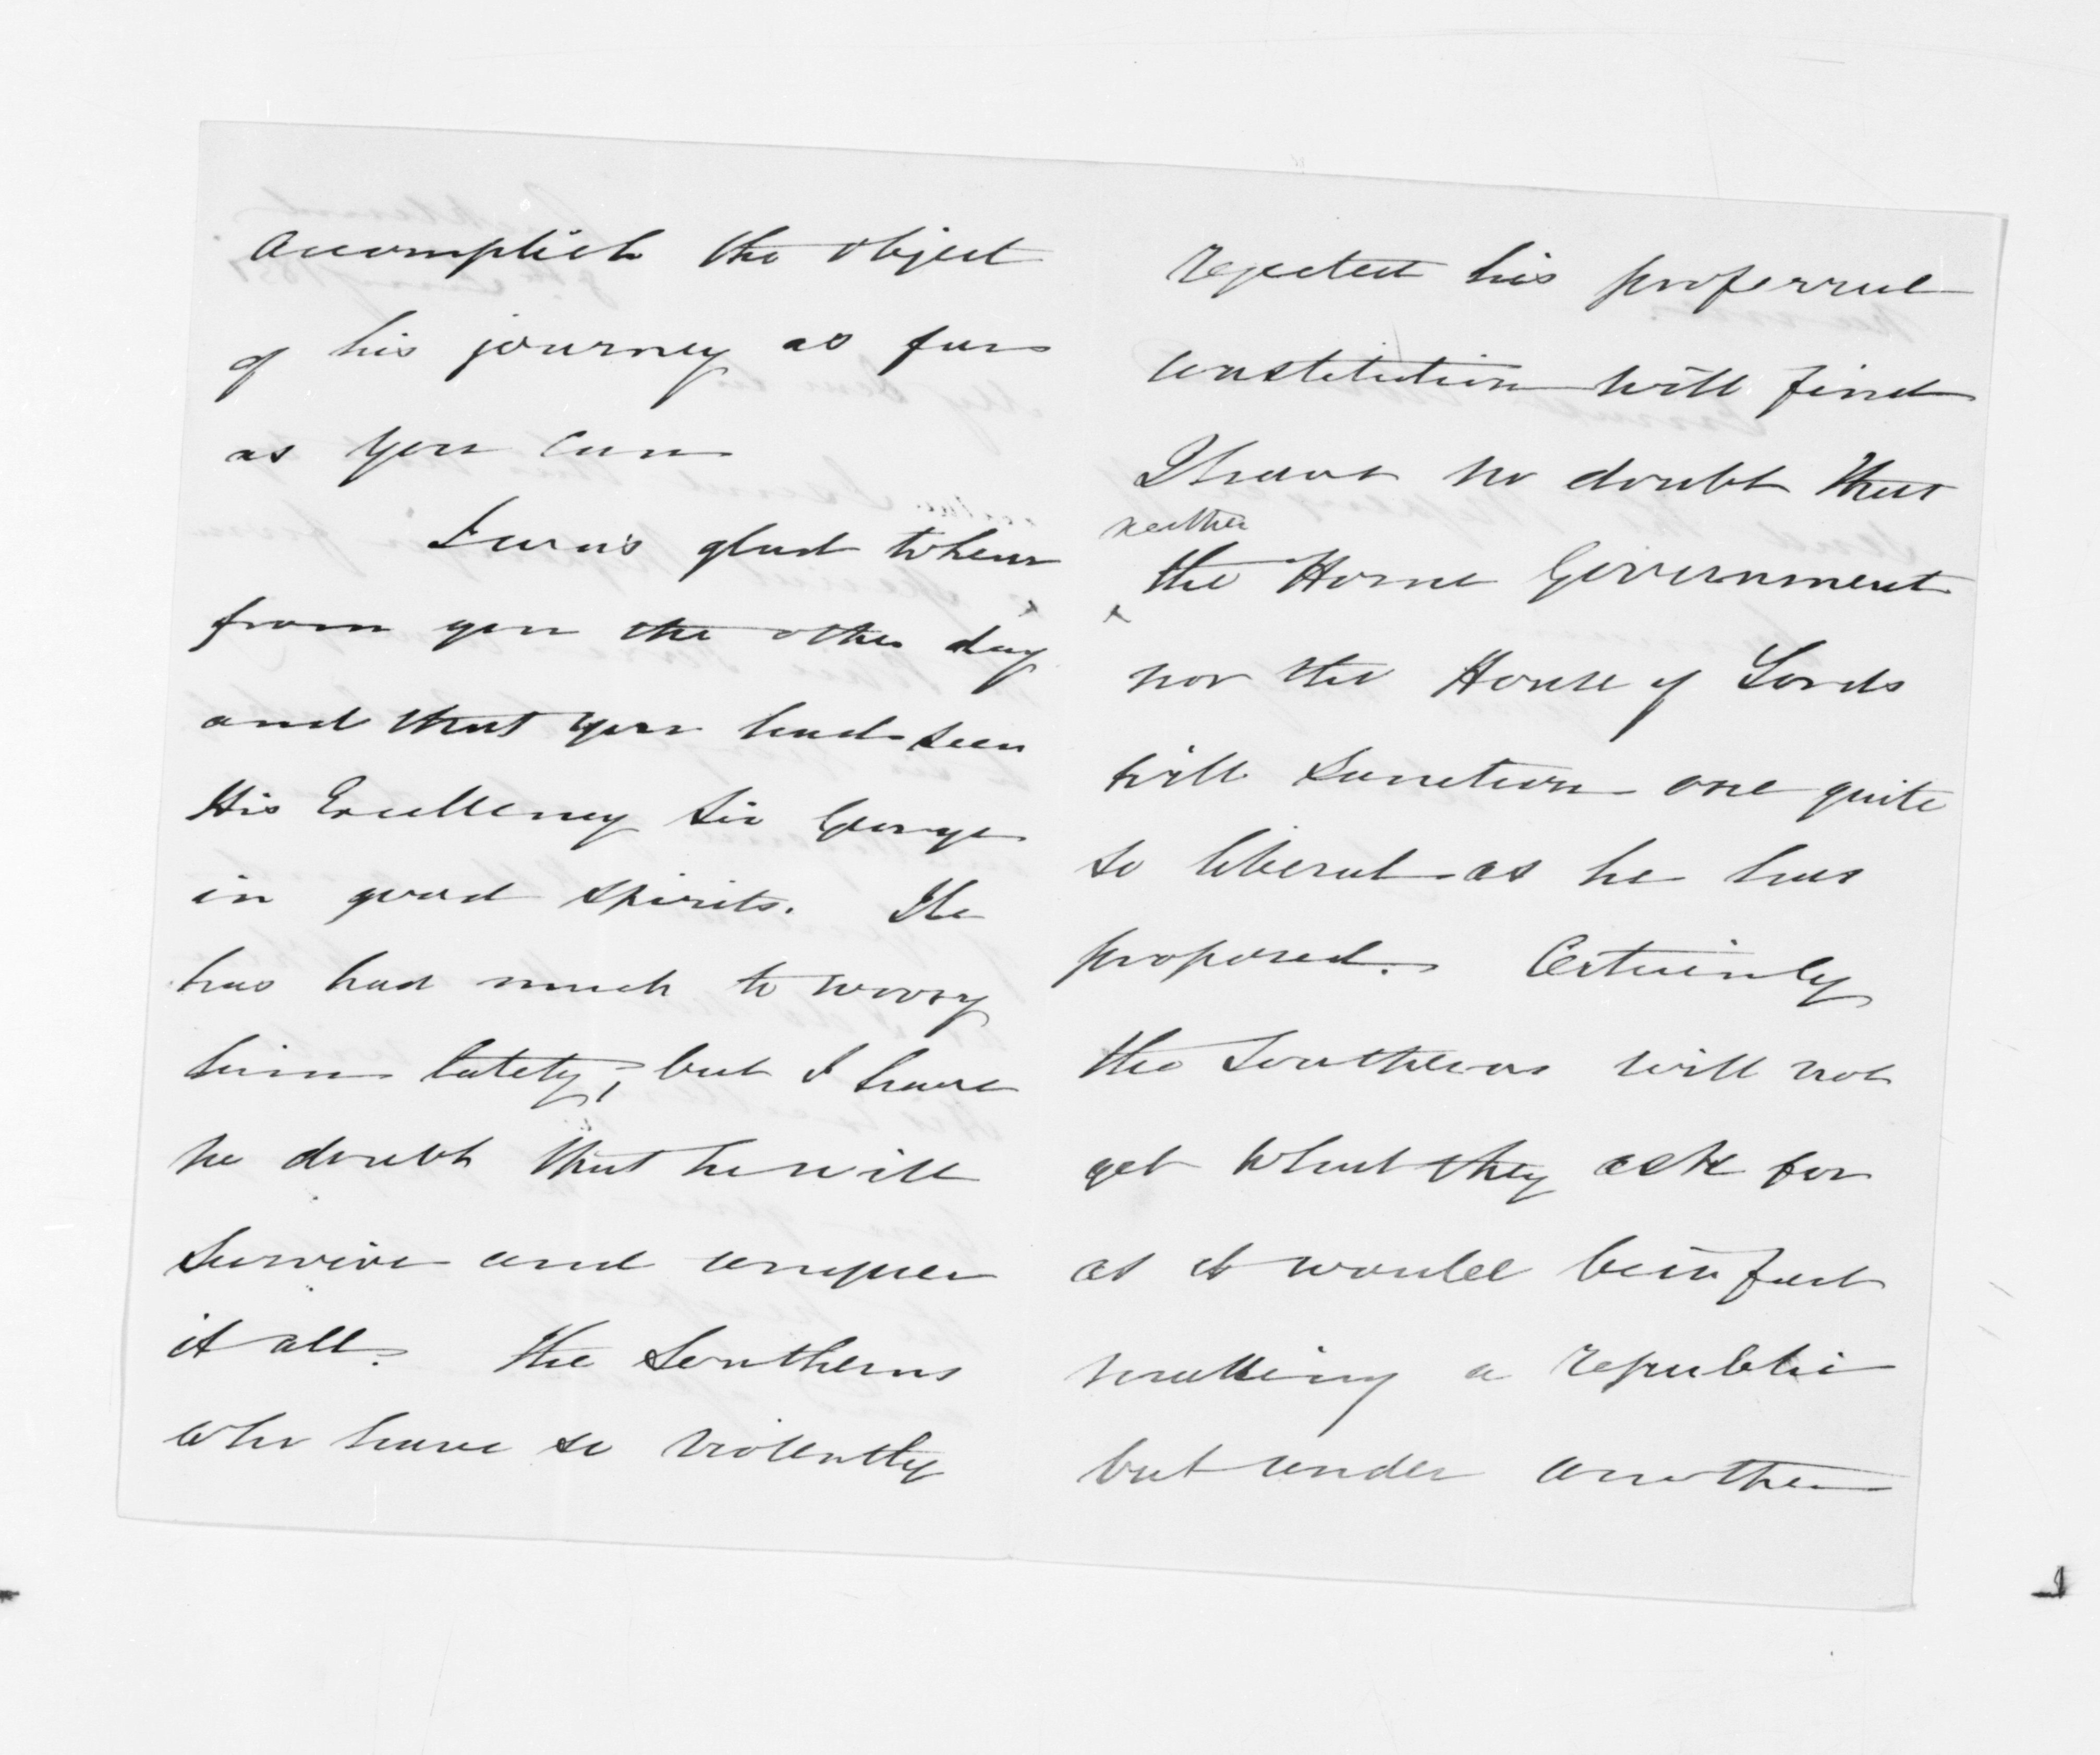 accomplish the object
of his journey as far
as you can
I was glad to hear
from you the other day
and that you had seen
His Excellency Sir George
in good spirits. He
has had much to worry
him lately, but I have
no doubt that he will
survive and conquer
it all. The Southerns
who have so violently
rejected his proferred
constitution will find
I have no doubt that
neither
the Home Government
nor the House of Lords
will sanction one quite
so liberal as he has
proposed. Certainly
the Southerns will not
get what they ask for
as it would be in fact
making a republic
but under another